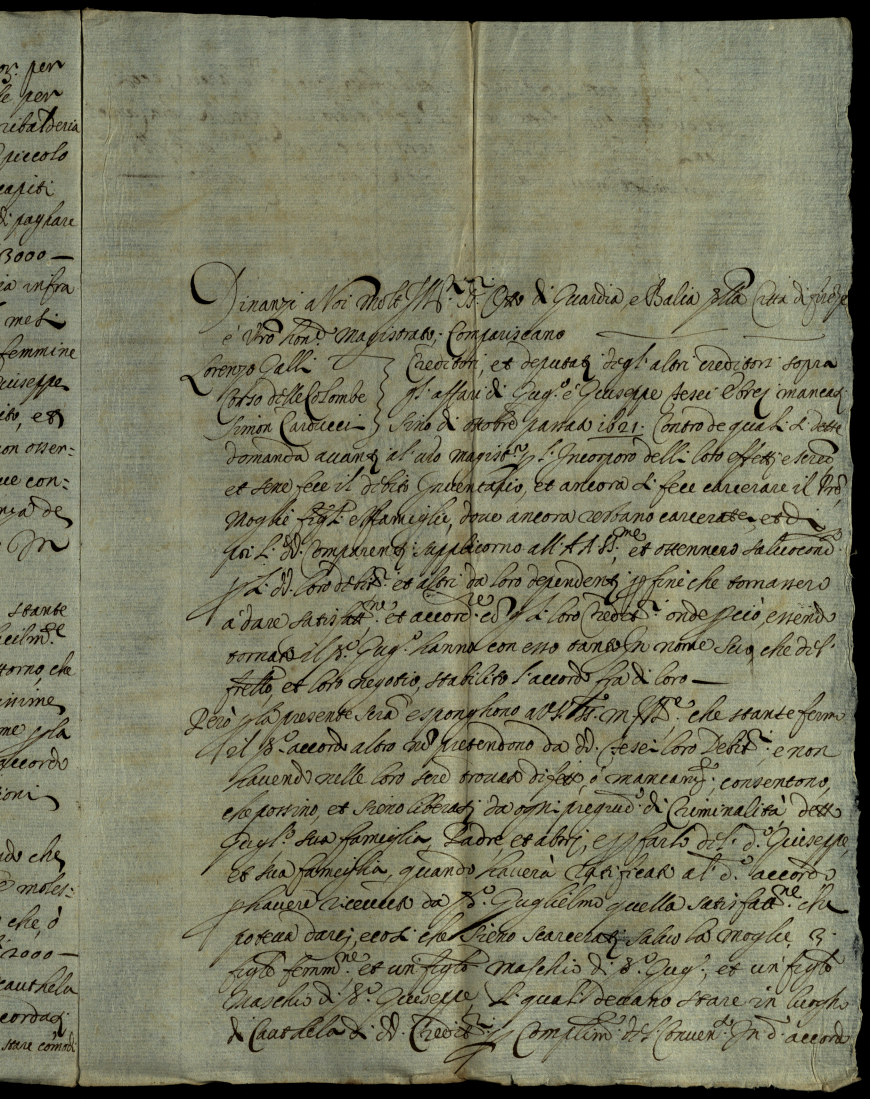 or. per
le per
ribalderia
piccolo
capiti
di pagare
3000 —
ia infra
mesi
femmine
Giuseppe
ito, et
non osser=
ue con=
nza de
In
stante
torno, che
issime
me p la
accordo
ioni
ndo che
moles=
che, ò
2000 —
cauthela
cordati
stare comodi
Dinanzi a Voi Molt' Ill.ri SS.ri Otto di Guardia, e Balia della Città di firenze
e' Vro hon.do Magistrato; Compariscano
Lorenzo Galli
Corso delle Colombe
Simon Carducci
Creditori, et deputati degl' altri creditori sopra
gl' affari di Gug.o e Giuseppe Sesei Ebrej mancati
sino di ottobre passato 1621. Contro de quali si dette
domanda avanti al' vro magist.o p l' Incorporo delli loro effetti e
et sene fece il debito Inventario, et ancora si fece carcerare il
Moglie figli e famiglie, dove ancora restano carcerate, et di
poi li dd. Comparenti supplicorno all' A A SS.me et ottennero salvocond.
p li dd. loro debit.ri et altri da loro dependenti p fine che tornassero
a' dare satisfatt.ne et accord. p li loro Credit.ri onde p ciò, essendo
tornato il d.o Gug.o hanno con esso tanto in nome suo, che del'
frello, et loro negotio, stabilito l' accordo fra di loro —
Però p la presente scra espongono a VS. Ill.me che stante fermo
il d.o accordo altro nō pretendono da dd. Sesei loro Debit.ri, e non
havendo nelle loro trovati difetti, ò mancam.ti, consentono,
che possino, et sieno liberati da ogni pregiud.o di Criminalità, detto
Gugl.o sua famiglia, Padre, et altri, e p farlo del d.o Giuseppe,
et sua famiglia, quando haverà ratificato al d.o accordo
p havere ricevuto da d.o Guglielmo quella satisfatt.ne che
poteva darci, e così che sieno scarcerati, salvo la moglie, 3
figlie femm.ne et un figlio maschio di d.o Gug.o, et un' figlio
Maschio di d.o Giuseppe, li quali devano stare in luogho
di Cauthela di dd. Credit.ri p Complim.to del Conven.to In d.o accordo